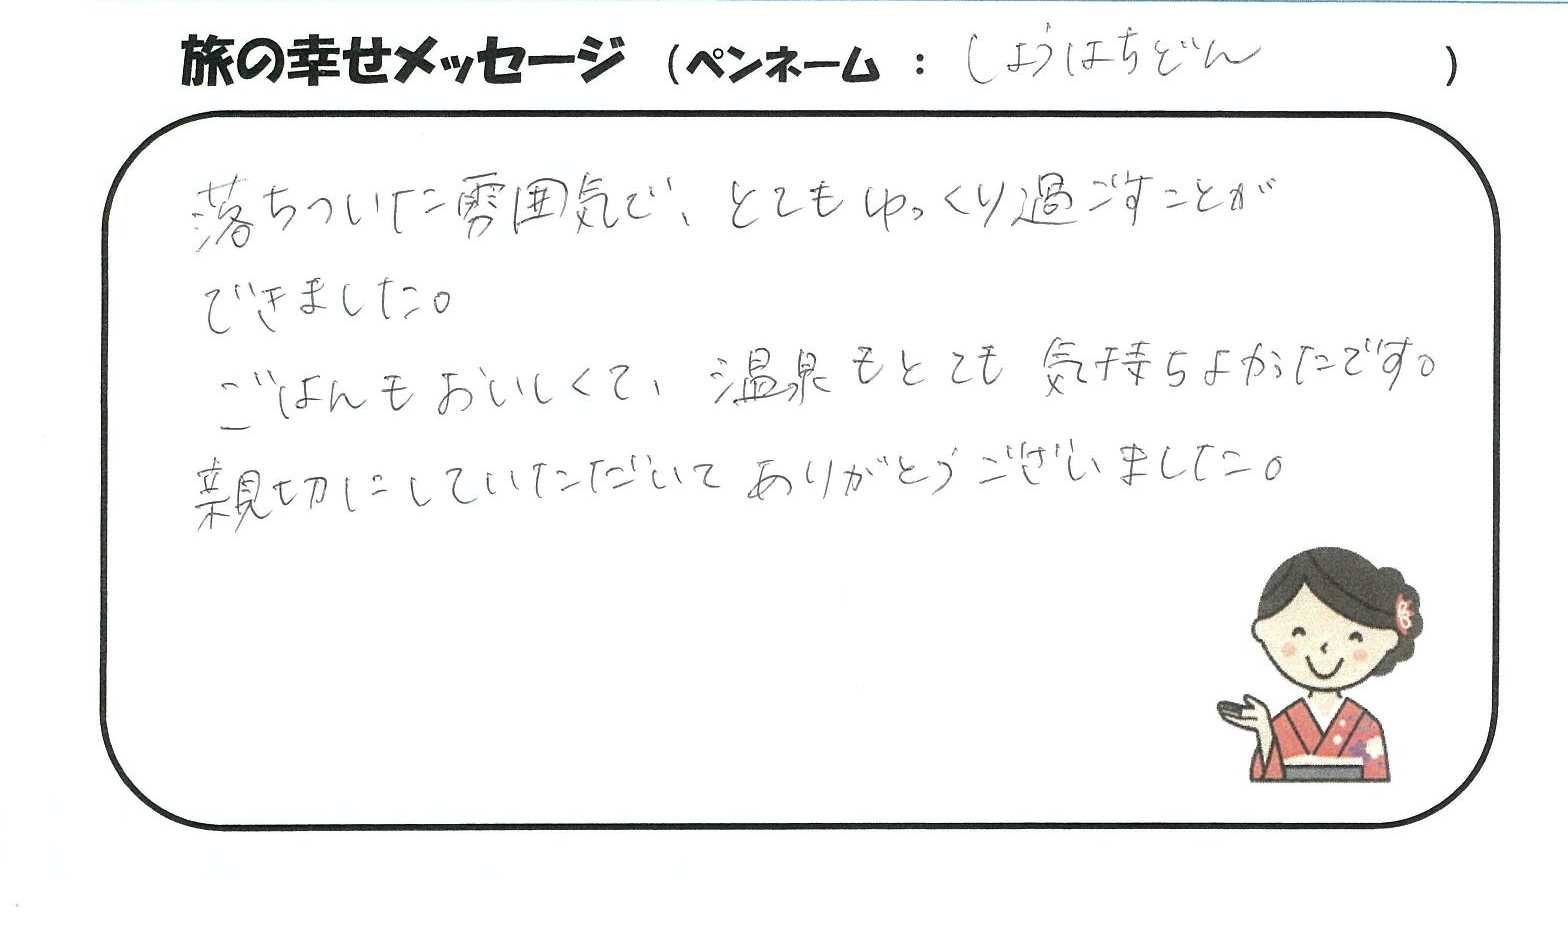 旅の幸せメッセージ (ペンネーム : しょうはちどん )
落ちついた雰囲気で、とてもゆっくり過ごすことが
できました。
ごはんもおいしくて、温泉もとても気持ちよかったです。
親切にしていただいてありがとうございました。